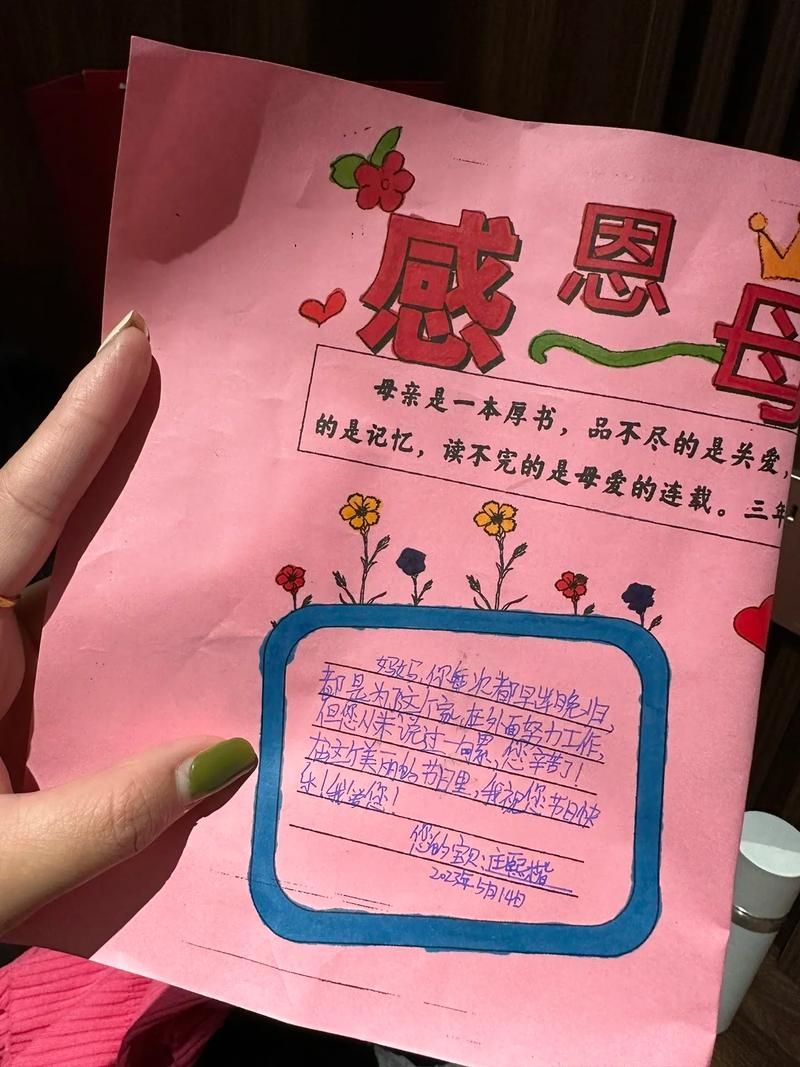 感恩母
母亲是一本厚书，品不尽的是关爱，
的是记忆，读不完的是母爱的连载。三年
妈妈，你每次都早出晚归，
都是为了这个家，在外面努力工作，
但您从来说过一属累，您辛苦了！
在这个美丽的节日里，我祝您节日快
乐！我爱您！
您的宝贝：庄熙楷
2023年5月14日